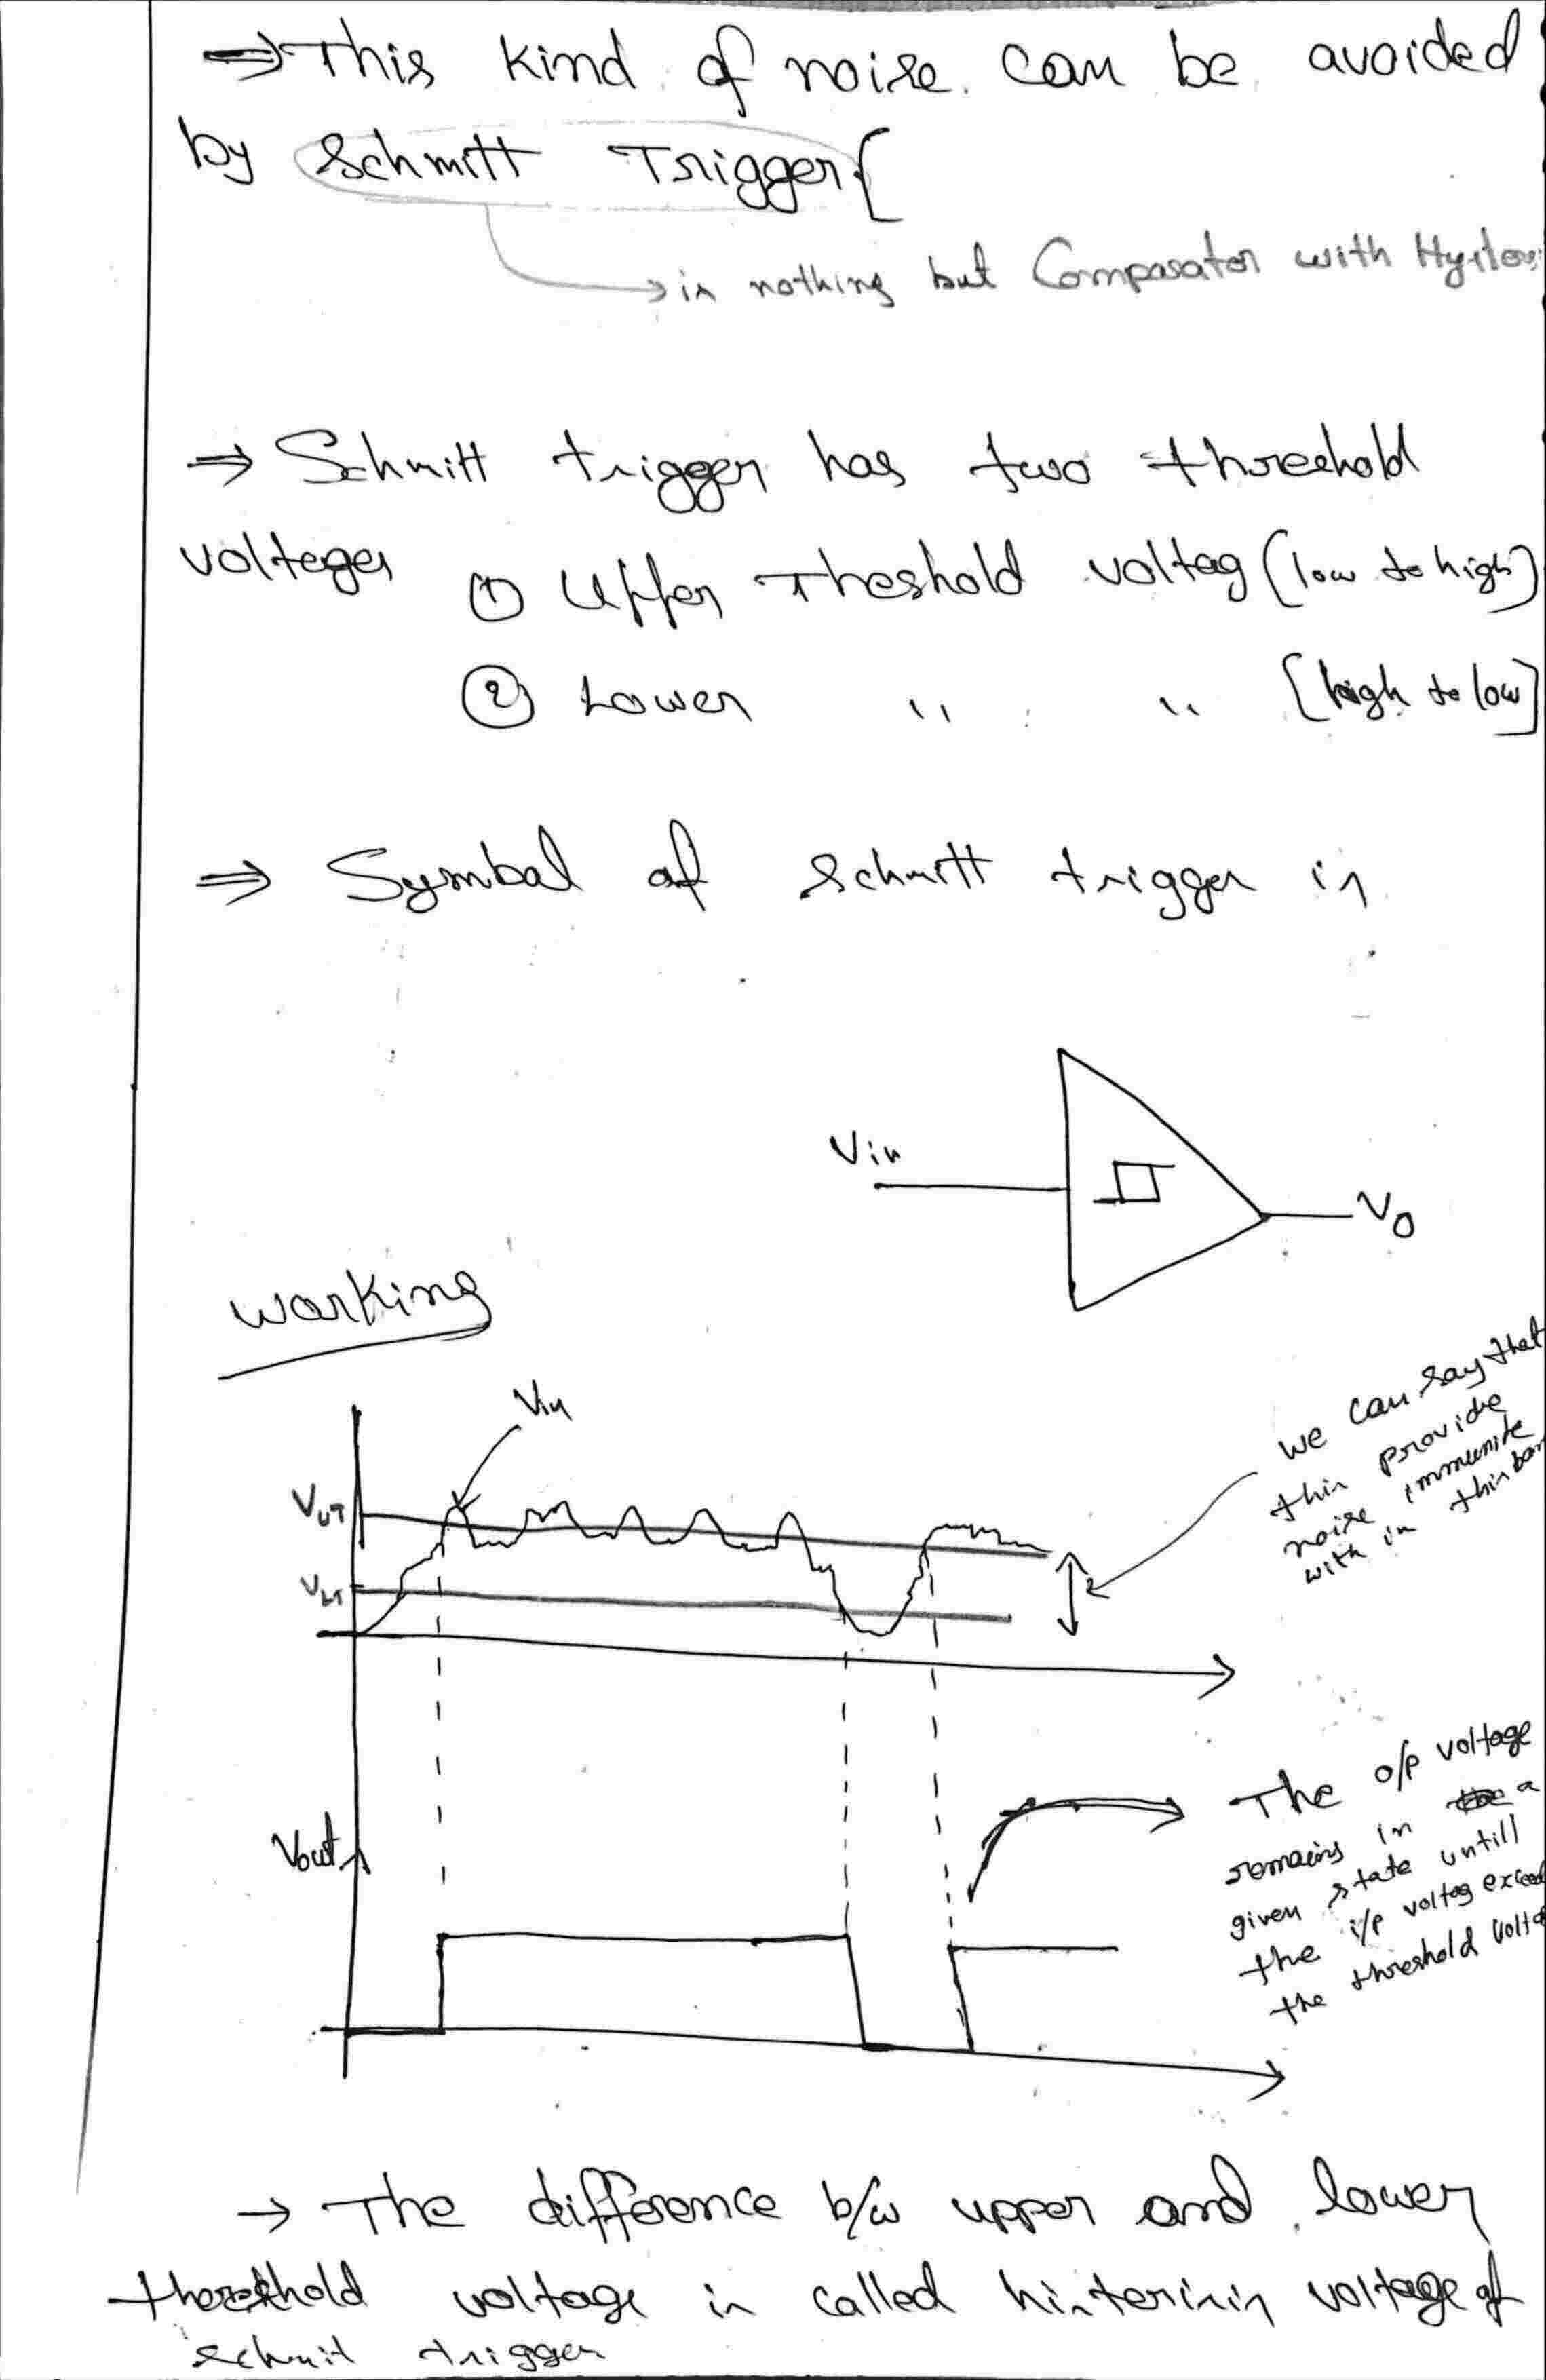 ⇒ This kind of noise can be avoided
by Schmitt Trigger {
→ is nothing but Comparator with
⇒ Schmitt trigger has two threshold
voltages ① Upper Theshold voltag (low to high)
② Lower " " [high to low]
⇒ Symbol of Schmitt trigger is
Vin
V0
working
Vin
VUT
VLT
we can say that
this provide
noise immunite
with in this
Vout
The o/p voltage
remains in a
given state untill
the i/p voltag
the threshold
→ The difference b/w upper and lower
voltage is called voltage of
schmit trigger